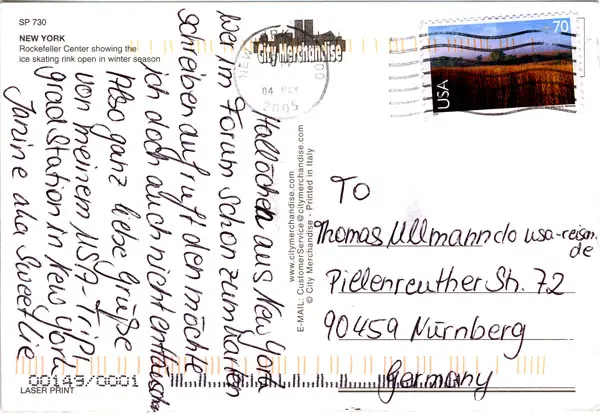 SP 730
NEW YORK
Rockefeller Center showing the
ice skating rink open in winter season
City Merchandise
NEW YORK
04 MAY
2005
70
USA
Hallöchen aus New York
wer im Forum schon zum Karten
schreiben aufruft den möchte
ich doch auch nicht enttäuschen
Also ganz liebe Grüße
von meinem USA-Trip!
grad Station in New York
Janine aka Sweetlie
www.citymerchandise.com
E-MAIL: CustomerService@citymerchandise.com
© City Merchandise - Printed in Italy
TO
Thomas Ullmann c/o usa-reisen.
de
Pillenreuther Str. 72
90459 Nürnberg
Germany
00149/0001
LASER PRINT